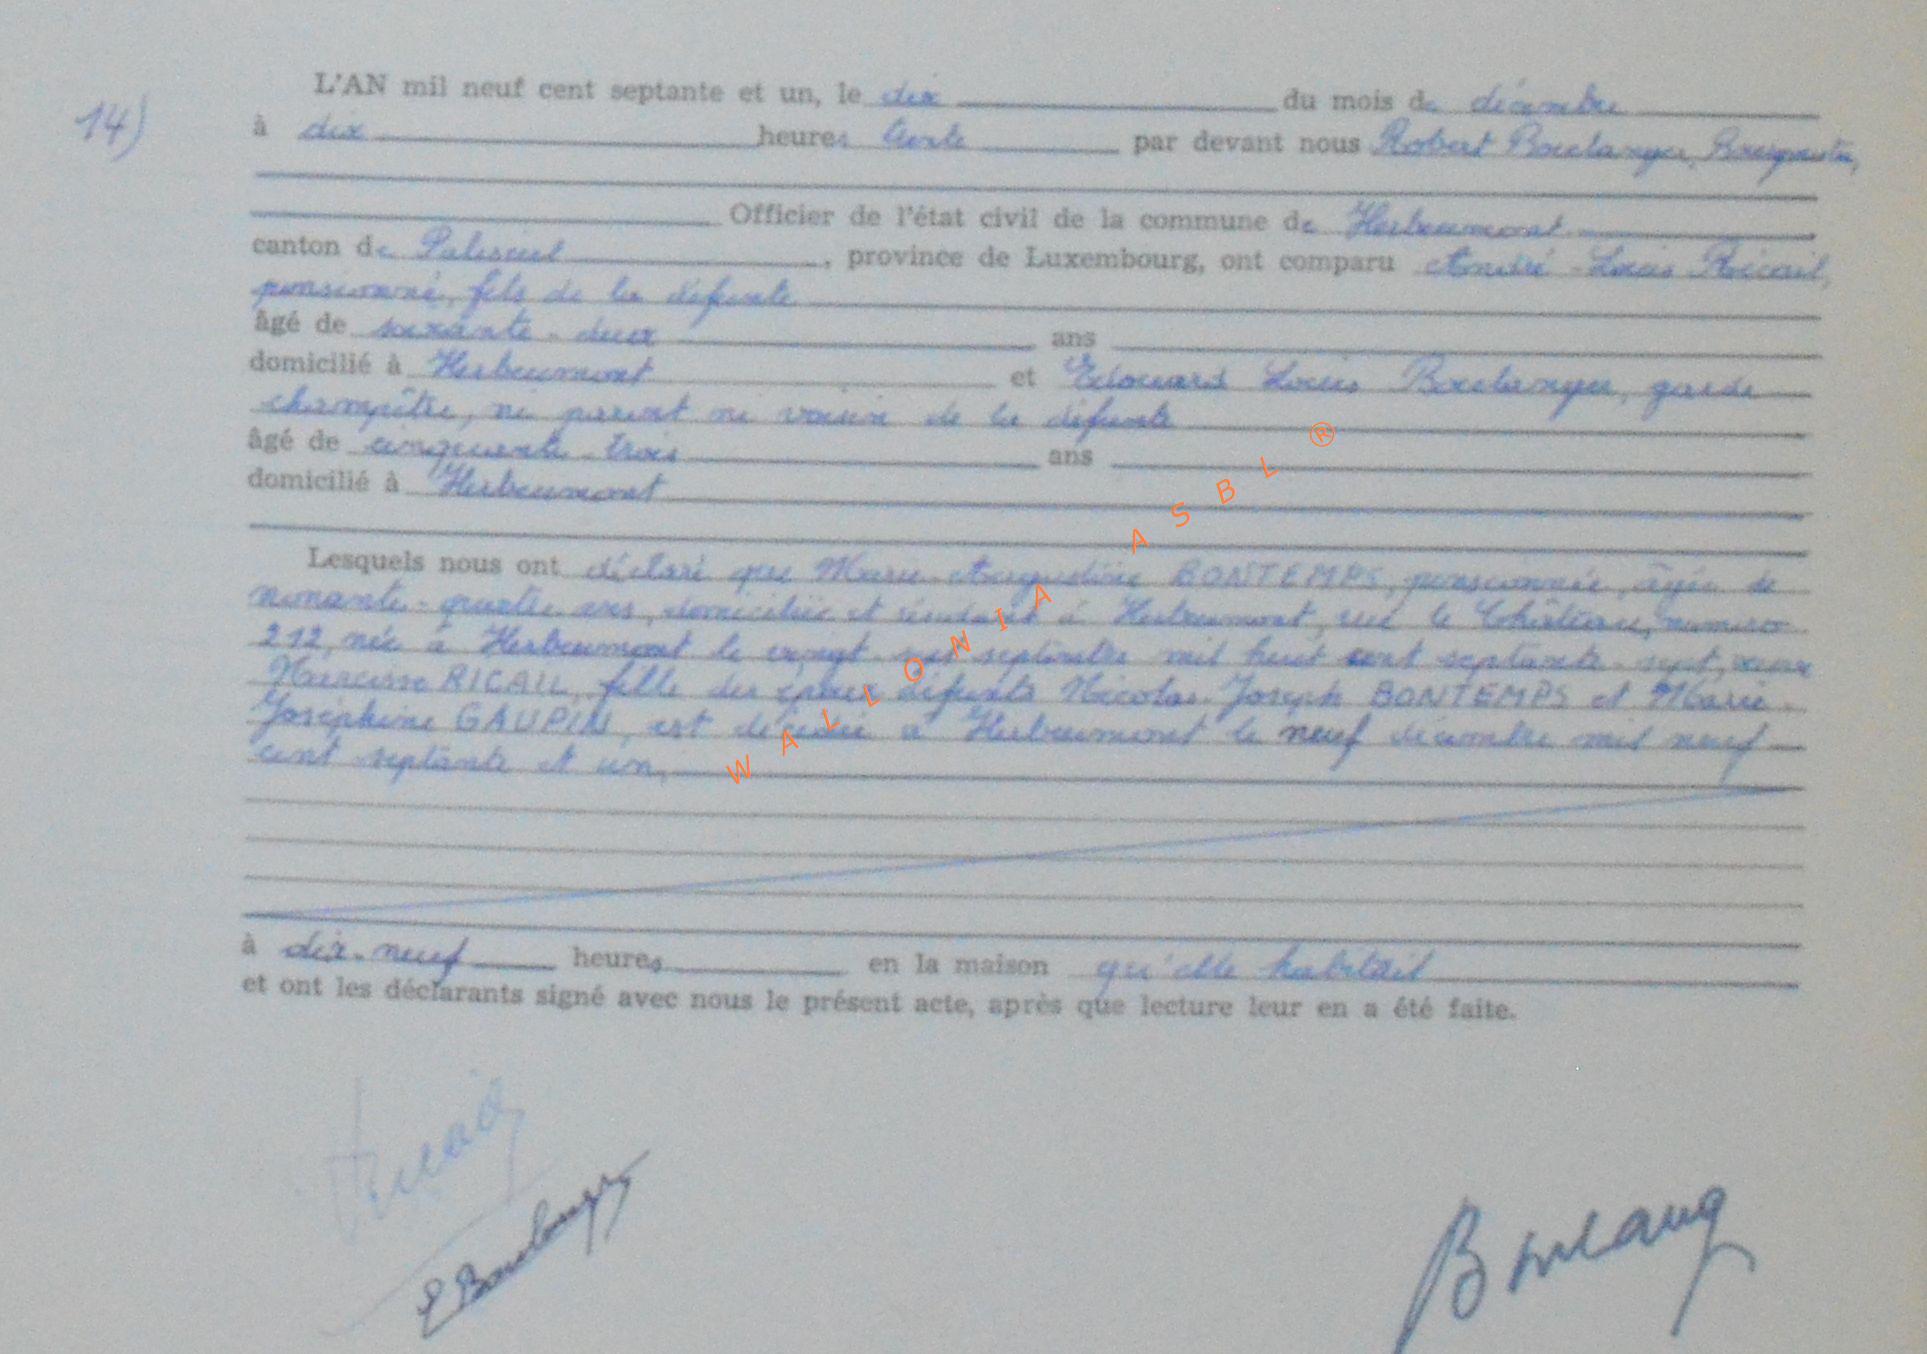 14)
L'AN mil neuf cent septante et un, le dix du mois de décembre
à dix heures trente par devant nous Robert Boulanger, Bourgmestre,
Officier de l'état civil de la commune de Herbeumont
canton de Paliseul, province de Luxembourg, ont comparu André-Louis Ricail,
pensionné, fils de la défunte
âgé de soixante-deux ans
domicilié à Herbeumont et Edouard Louis Boulanger, garde
champêtre, ni parent ni voisin de la défunte
âgé de cinquante-trois ans
domicilié à Herbeumont
Lesquels nous ont déclaré que Marie-Augustine BONTEMPS, pensionnée, âgée de
nonante-quatre ans, domiciliée et résidant à Herbeumont, rue le Château, numéro
212, née à Herbeumont le vingt-six septembre mil huit cent septante-sept, veuve
Narcisse RICAIL, fille des époux défunts Nicolas-Joseph BONTEMPS et Marie-
Joséphine GAUPIN, est décédée à Herbeumont le neuf décembre mil neuf
cent septante et un,
à dix-neuf heures en la maison qu'elle habitait
et ont les déclarants signé avec nous le présent acte, après que lecture leur en a été faite.
E Boulanger
Boulang
WALLONIA ASBL ®